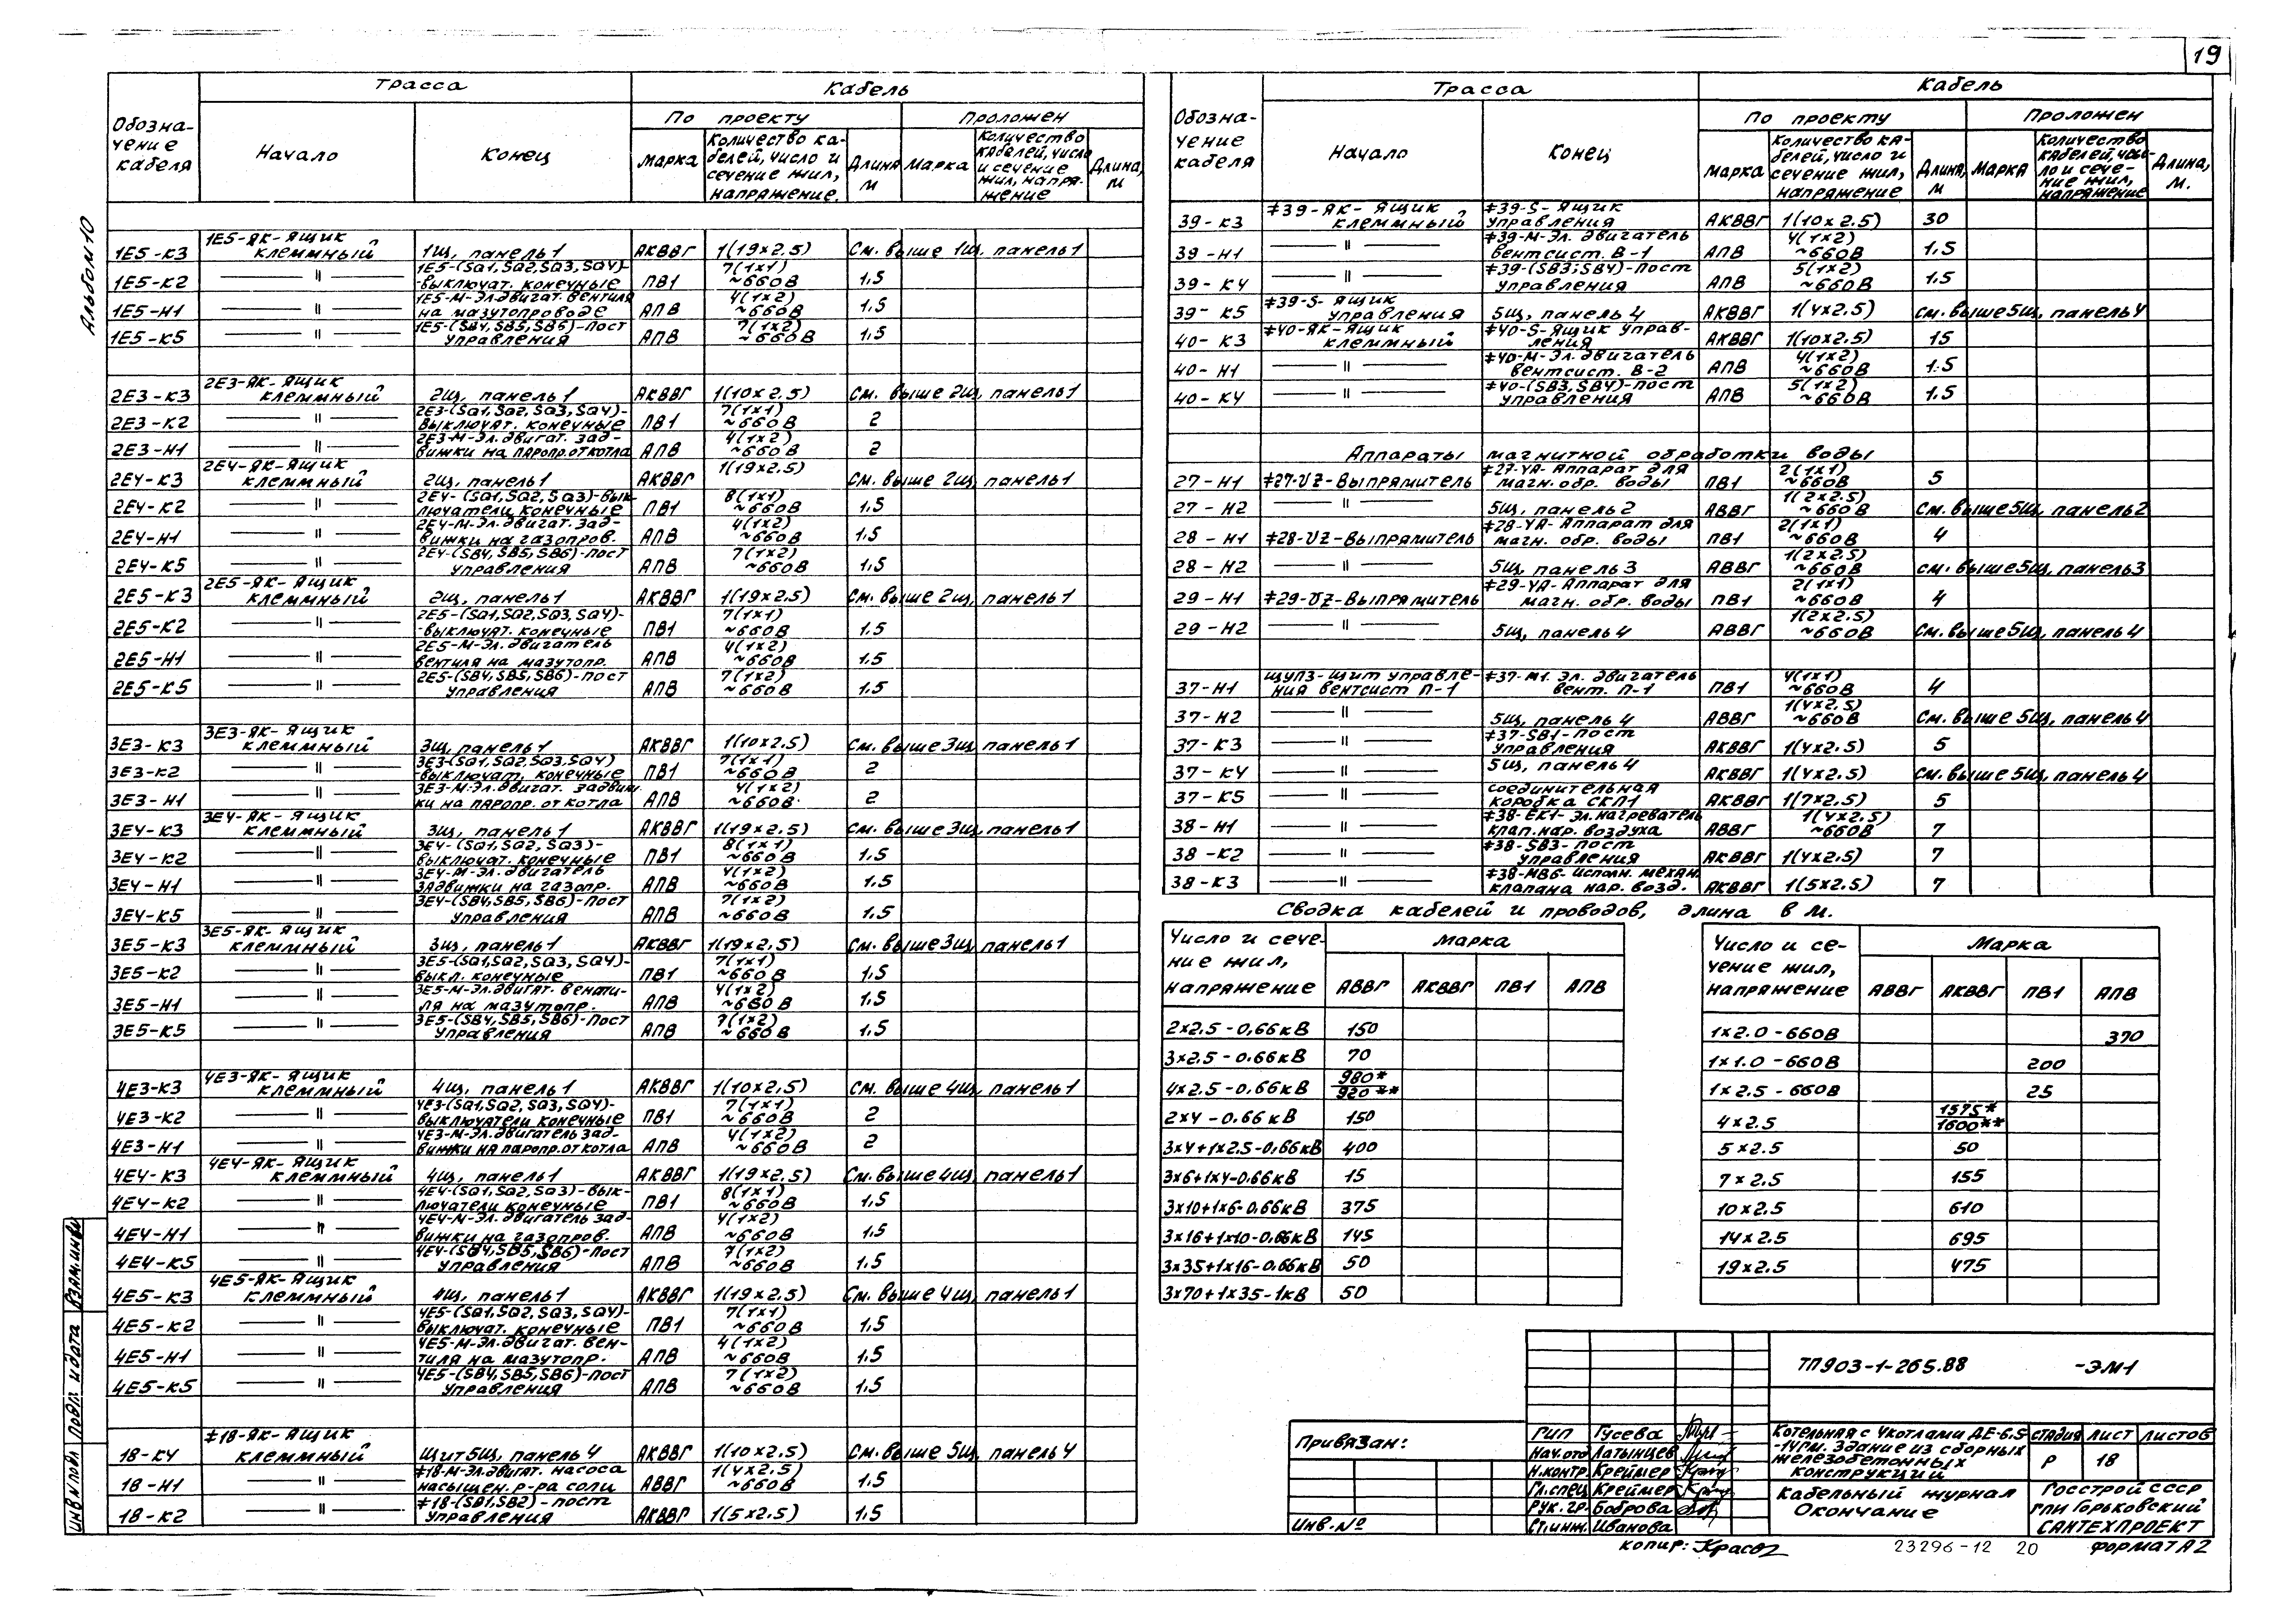 19
Альбом 10
Обозна-
чение
кабеля
Трасса
Кабель
Начало
Конец
По проекту
Проложен
Марка
Количество ка-
белей, число и
сечение жил,
напряжение.
Длина
м
Марка
Количество
кабелей, число
и сечение
жил, напря-
жение
Длина,
м
1Е5-К3 1Е5-ЯК-Ящик клеммный 1щ, панель 1 АКВВГ 1(19×2.5) См. выше 1щ, панель 1
1Е5-К2 —〃— 1Е5-(SQ1,SQ2,SQ3,SQ4)-выключат. конечные ПВ1 7(1×1) ~660В 1,5
1Е5-Н1 —〃— 1Е5-М-Эл.двигат. вентиля на мазутопроводе АПВ 4(1×2) ~660В 1,5
1Е5-К5 —〃— 1Е5-(SB4,SB5,SB6)-Пост управления АПВ 7(1×2) ~660В 1,5
2Е3-К3 2Е3-ЯК-Ящик клеммный 2щ, панель 1 АКВВГ 1(10×2.5) См. выше 2щ, панель 1
2Е3-К2 —〃— 2Е3-(SQ1,SQ2,SQ3,SQ4)-выключат. конечные ПВ1 7(1×1) ~660В 2
2Е3-Н1 —〃— 2Е3-М-Эл.двигат. зад-вижки на паропр. от котла АПВ 4(1×2) ~660В 2
2Е4-К3 2Е4-ЯК-Ящик клеммный 2щ, панель 1 АКВВГ 1(19×2.5) См. выше 2щ, панель 1
2Е4-К2 —〃— 2Е4-(SQ1,SQ2,SQ3)-вык-лючатели конечные ПВ1 8(1×1) ~660В 1,5
2Е4-Н1 —〃— 2Е4-М-Эл.двигат. зад-вижки на газопров. АПВ 4(1×2) ~660В 1,5
2Е4-К5 —〃— 2Е4-(SB4,SB5,SB6)-пост управления АПВ 7(1×2) ~660В 1,5
2Е5-К3 2Е5-ЯК-Ящик клеммный 2щ, панель 1 АКВВГ 1(19×2.5) См. выше 2щ, панель 1
2Е5-К2 —〃— 2Е5-(SQ1,SQ2,SQ3,SQ4)-выключат. конечные ПВ1 7(1×1) ~660В 1.5
2Е5-Н1 —〃— 2Е5-М-Эл.двигатель вентиля на мазутопр. АПВ 4(1×2) ~660В 1.5
2Е5-К5 —〃— 2Е5-(SB4,SB5,SB6)-пост управления АПВ 7(1×2) ~660В 1,5
3Е3-К3 3Е3-ЯК-Ящик клеммный 3щ, панель 1 АКВВГ 1(10×2.5) См. выше 3щ, панель 1
3Е3-К2 —〃— 3Е3-(SQ1,SQ2,SQ3,SQ4) -выключат. конечные ПВ1 7(1×1) ~660В 2
3Е3-Н1 —〃— 3Е3-М-Эл.двигат. задвиж-ки на паропр. от котла АПВ 4(1×2) ~660В 2
3Е4-К3 3Е4-ЯК-Ящик клеммный 3щ, панель 1 АКВВГ 1(19×2.5) См. выше 3щ, панель 1
3Е4-К2 —〃— 3Е4-(SQ1,SQ2,SQ3)-выключат. конечные ПВ1 8(1×1) ~660В 1.5
3Е4-Н1 —〃— 3Е4-М-Эл.двигатель задвижки на газопр. АПВ 4(1×2) ~660В 1.5
3Е4-К5 —〃— 3Е4-(SB4,SB5,SB6)-Пост управления АПВ 7(1×2) ~660В 1,5
3Е5-К3 3Е5-ЯК-Ящик клеммный 3щ, панель 1 АКВВГ 1(19×2.5) См. выше 3щ, панель 1
3Е5-К2 —〃— 3Е5-(SQ1,SQ2,SQ3,SQ4)-выкл. конечные ПВ1 7(1×1) ~660В 1.5
3Е5-Н1 —〃— 3Е5-М-Эл.двигат. венти-ля на мазутопр. АПВ 4(1×2) ~660В 1,5
3Е5-К5 —〃— 3Е5-(SB4,SB5,SB6)-Пост управления АПВ 7(1×2) ~660В 1.5
4Е3-К3 4Е3-ЯК-Ящик клеммный 4щ, панель 1 АКВВГ 1(10×2.5) См. выше 4щ, панель 1
4Е3-К2 —〃— 4Е3-(SQ1,SQ2,SQ3,SQ4)-выключатели конечные ПВ1 7(1×1) ~660В 2
4Е3-Н1 —〃— 4Е3-М-Эл.двигатель зад-вижки на паропр. от котла АПВ 4(1×2) ~660В 2
4Е4-К3 4Е4-ЯК-Ящик клеммный 4щ, панель 1 АКВВГ 1(19×2.5) См. выше 4щ, панель 1
4Е4-К2 —〃— 4Е4-(SQ1,SQ2,SQ3)-вык-лючатели конечные ПВ1 8(1×1) ~660В 1,5
4Е4-Н1 —〃— 4Е4-М-Эл.двигатель зад-вижки на газопров. АПВ 4(1×2) ~660В 1,5
4Е4-К5 —〃— 4Е4-(SB4,SB5,SB6)-пост управления АПВ 7(1×2) ~660В 1,5
4Е5-К3 4Е5-ЯК-Ящик клеммный 4щ, панель 1 АКВВГ 1(19×2.5) См. выше 4щ, панель 1
4Е5-К2 —〃— 4Е5-(SQ1,SQ2,SQ3,SQ4)-выключат. конечные ПВ1 7(1×1) ~660В 1,5
4Е5-Н1 —〃— 4Е5-М-Эл.двигат. вен-тиля на мазутопр. АПВ 4(1×2) ~660В 1,5
4Е5-К5 —〃— 4Е5-(SB4,SB5,SB6)-пост управления АПВ 7(1×2) ~660В 1,5
18-К4 ≠18-ЯК-Ящик клеммный Щит 5щ, панель 4 АКВВГ 1(10×2.5) См. выше 5щ, панель 4
18-Н1 —〃— ≠18-М-Эл.двигат. насоса насыщен. р-ра соли АВВГ 1(4×2.5) ~660В 1,5
18-К2 —〃— ≠18-(SB1,SB2)-пост управления АКВВГ 1(5×2.5) 1,5
Обозна-
чение
кабеля
Трасса
Кабель
Начало
Конец
По проекту
Проложен
Марка
Количество ка-
белей, число и
сечение жил,
напряжение
Длина,
м
Марка
Количество
кабелей, чис-
ло и сече-
ние жил,
напряжение
Длина,
м.
39-К3 ≠39-ЯК-Ящик клеммный ≠39-S-Ящик управления АКВВГ 1(10×2.5) 30
39-Н1 —〃— ≠39-М-Эл. двигатель вентсист. В-1 АПВ 4(1×2) ~660В 1,5
39-К4 —〃— ≠39-(SB3;SB4)-Пост управления АПВ 5(1×2) ~660В 1,5
39-К5 ≠39-S-Ящик управления 5щ, панель 4 АКВВГ 1(4×2.5) см. выше 5щ, панель 4
40-К3 ≠40-ЯК-Ящик клеммный ≠40-S-Ящик управ-ления АКВВГ 1(10×2.5) 15
40-Н1 —〃— ≠40-М-Эл. двигатель вентсист. В-2 АПВ 4(1×2) ~660В 1.5
40-К4 —〃— ≠40-(SB3,SB4)-пост управления АПВ 5(1×2) ~660В 1.5
Аппараты магнитной обработки воды
27-Н1 ≠27-VZ-Выпрямитель ≠27-YA-Аппарат для магн. обр. воды ПВ1 2(1×1) ~660В 5
27-Н2 —〃— 5щ, панель 2 АВВГ 1(2×2.5) ~660В См. выше 5щ, панель 2
28-Н1 ≠28-VZ-Выпрямитель ≠28-YA-Аппарат для магн. обр. воды ПВ1 2(1×1) ~660В 4
28-Н2 —〃— 5щ, панель 3 АВВГ 1(2×2.5) ~660В см. выше 5щ, панель 3
29-Н1 ≠29-VZ-Выпрямитель ≠29-YA-Аппарат для магн. обр. воды ПВ1 2(1×1) ~660В 4
29-Н2 —〃— 5щ, панель 4 АВВГ 1(2×2.5) ~660В См. выше 5щ, панель 4
37-Н1 ЩУП3-щит управле-ния вентсист П-1 ≠37-М1. Эл. двигатель вент. П-1 ПВ1 4(1×1) ~660В 4
37-Н2 —〃— 5щ, панель 4 АВВГ 1(4×2.5) ~660В См. выше 5щ, панель 4
37-К3 —〃— ≠37-SB1-пост управления АКВВГ 1(4×2.5) 5
37-К4 —〃— 5щ, панель 4 АКВВГ 1(4×2.5) См. выше 5щ, панель 4
37-К5 —〃— соединительная коробка СКП1 АКВВГ 1(7×2.5) 5
38-Н1 —〃— ≠38-ЕК1-Эл.нагреватель клап. нар. воздуха АВВГ 1(4×2.5) ~660В 7
38-К2 —〃— ≠38-SB3-пост управления АКВВГ 1(4×2.5) 7
38-К3 —〃— ≠38-МВ6-Исполн. механ. клапана нар. возд. АКВВГ 1(5×2.5) 7
Сводка кабелей и проводов, длина в м.
Число и сече-
ние жил,
напряжение
Марка
АВВГ АКВВГ ПВ1 АПВ
2×2.5-0,66кВ 150
3×2.5-0.66кВ 70
4×2.5-0.66кВ 980* 920**
2×4-0.66кВ 150
3×4+1×2.5-0.66кВ 400
3×6+1×4-0.66кВ 15
3×10+1×6-0.66кВ 375
3×16+1×10-0.66кВ 145
3×35+1×16-0.66кВ 50
3×70+1×35-1кВ 50
Число и се-
чение жил,
напряжение
Марка
АВВГ АКВВГ ПВ1 АПВ
1×2.0-660В 370
1×1.0-660В 200
1×2.5-660В 25
4×2.5 1575* 1600**
5×2.5 50
7×2.5 155
10×2.5 610
14×2.5 695
19×2.5 475
ТП903-1-265.88 -ЭМ1
Привязан:
Инв.№
Гип Гусева
Нач.отд Латынцев
Н.контр. Креймер
Гл.спец Креймер
Рук.гр. Боброва
Ст.инж. Иванова
Котельная с 4 котлами ДЕ-6.5
-14гм. Здание из сборных
железобетонных
конструкций
Стадия Лист Листов
Р 18
Кабельный журнал
Окончание
Госстрой СССР
ГПИ Горьковский
САНТЕХПРОЕКТ
Копир:
23296-12 20
Формат А2
Инв.№подл Подп. и дата Взам.инв№